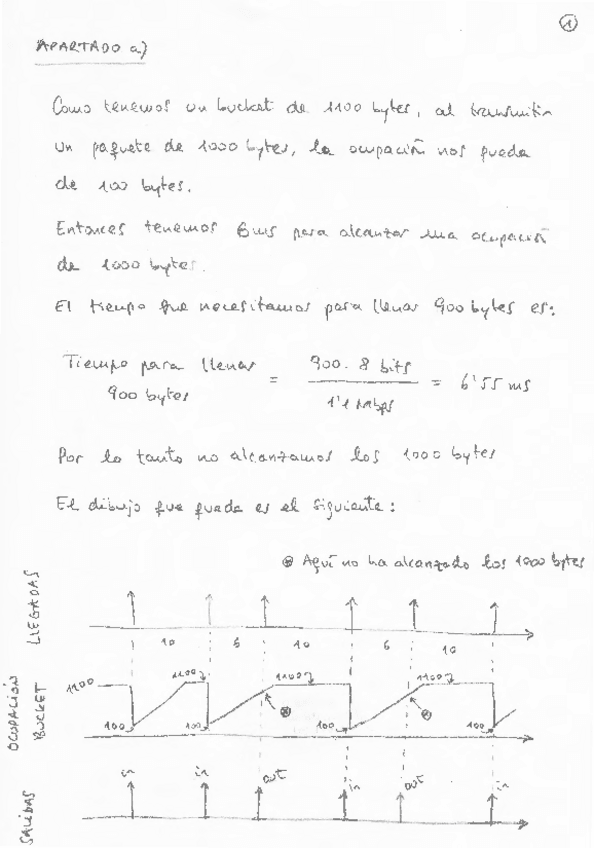 1
APARTADO a)
Como tenemos un bucket de 1100 bytes, al transmitir
un paquete de 1000 bytes, la ocupación nos queda
de 100 bytes.
Entonces tenemos 6ms para alcanzar una ocupación
de 1000 bytes.
El tiempo que necesitamos para llenar 900 bytes es:
Tiempo para llenar 900 bytes = 900 · 8 bits / 1'1 Mbps = 6'55 ms
Por lo tanto no alcanzamos los 1000 bytes
El dibujo que queda es el siguiente:
⊗ Aquí no ha alcanzado los 1000 bytes
LLEGADAS
10 6 10 6 10
OCUPACION BUCKET
1100 1100 1100 1100
100 100 ⊗ 100 ⊗ 100
SALIDAS
in in out in out in